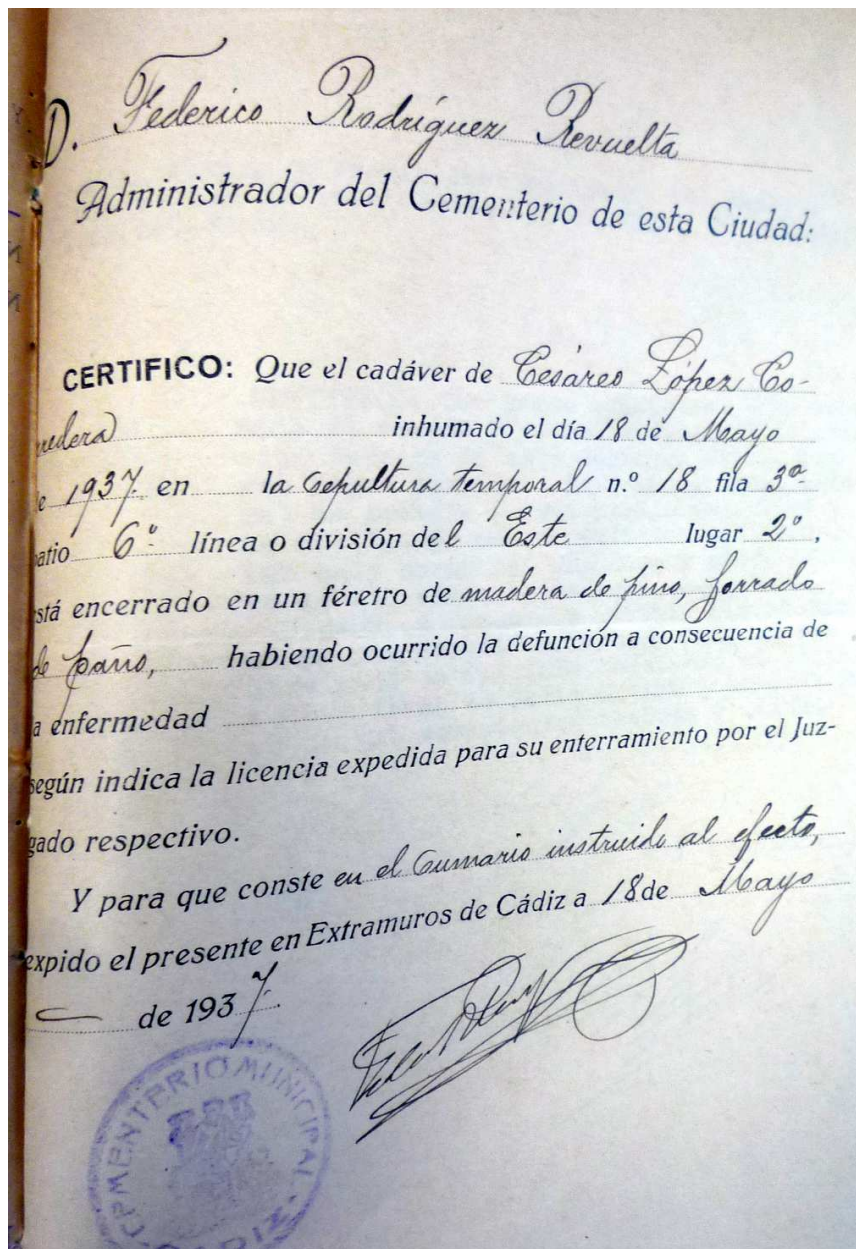 D. Federico Rodríguez Revuelta
Administrador del Cementerio de esta Ciudad:
CERTIFICO: Que el cadáver de Cesáreo López Co-
rredera inhumado el día 18 de Mayo
de 1937. en la Sepultura temporal n.º 18 fila 3ª
patio 6º línea o división del Este lugar 2º,
está encerrado en un féretro de madera de pino, forrado
de paño, habiendo ocurrido la defunción a consecuencia de
la enfermedad
según indica la licencia expedida para su enterramiento por el Juz-
gado respectivo.
Y para que conste en el Sumario instruido al efecto,
expido el presente en Extramuros de Cádiz a 18 de Mayo
de 1937.
CEMENTERIO MUNICIPAL
CADIZ